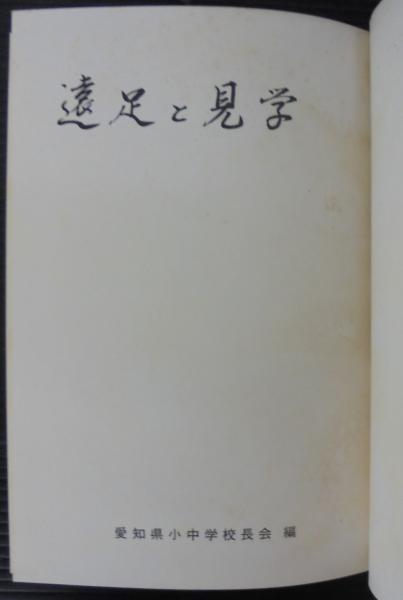 遠足と見学
愛知県小中学校長会 編